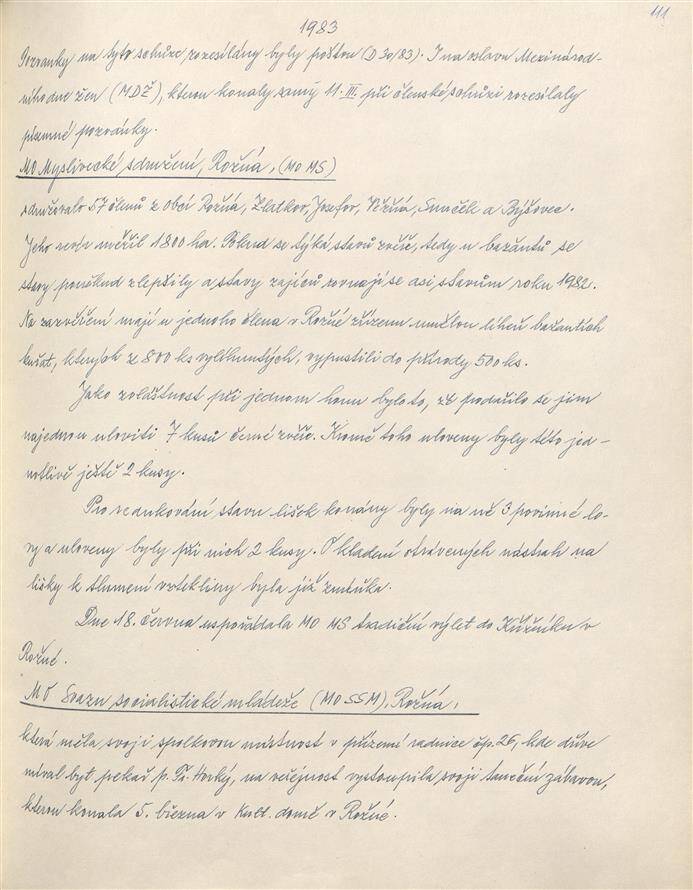 111
1983
Pozvánky na tyto schůze rozesílány byly poštou (D 30/83). I na oslavu Mezinárod-
ního dne žen (MDŽ), kterou konaly samy 11. III. při členské schůzi rozesílaly
písemné pozvánky.
MO Myslivecké sdružení, Rožná, (MO MS)
sdružovalo 57 členů z obcí Rožná, Zlatkov, Josefov, Věžná, Smrček a Býšovec.
Jeho revír měřil 1800 ha. Pokud se týká stavů zvěře, tedy u bažantů se
stavy poněkud zlepšily a stavy zajíců rovnají se asi stavům roku 1982.
Na zazvěření mají u jednoho člena v Rožné řízenu umělou líheň bažantích
kuřat, kterých z 800 ks vylíhnutých, vypustili do přírody 500 ks.
Jako zvláštnost při jednom honu bylo to, že podařilo se jim
najednou uloviti 7 kusů černé zvěře. Kromě toho uloveny byly této jed-
notlivě ještě 2 kusy.
Pro redukování stavu lišek konány byly na ně 3 povinné lo-
vy a uloveny byly při nich 2 kusy. O kladení otrávených nástrah na
lišky k tlumení vztekliny byla již zmínka.
Dne 18. června uspořádala MO MS tradiční výlet do Kříbníku v
Rožné.
MO Svazu socialistické mládeže (MO SSM), Rožná,
která měla svoji spolkovou místnost v přízemí radnice čp. 26, kde dříve
míval byt pekař p. Fr. Horký, na veřejnost vystoupila svojí taneční zábavou,
kterou konala 5. března v Kult. domě v Rožné.